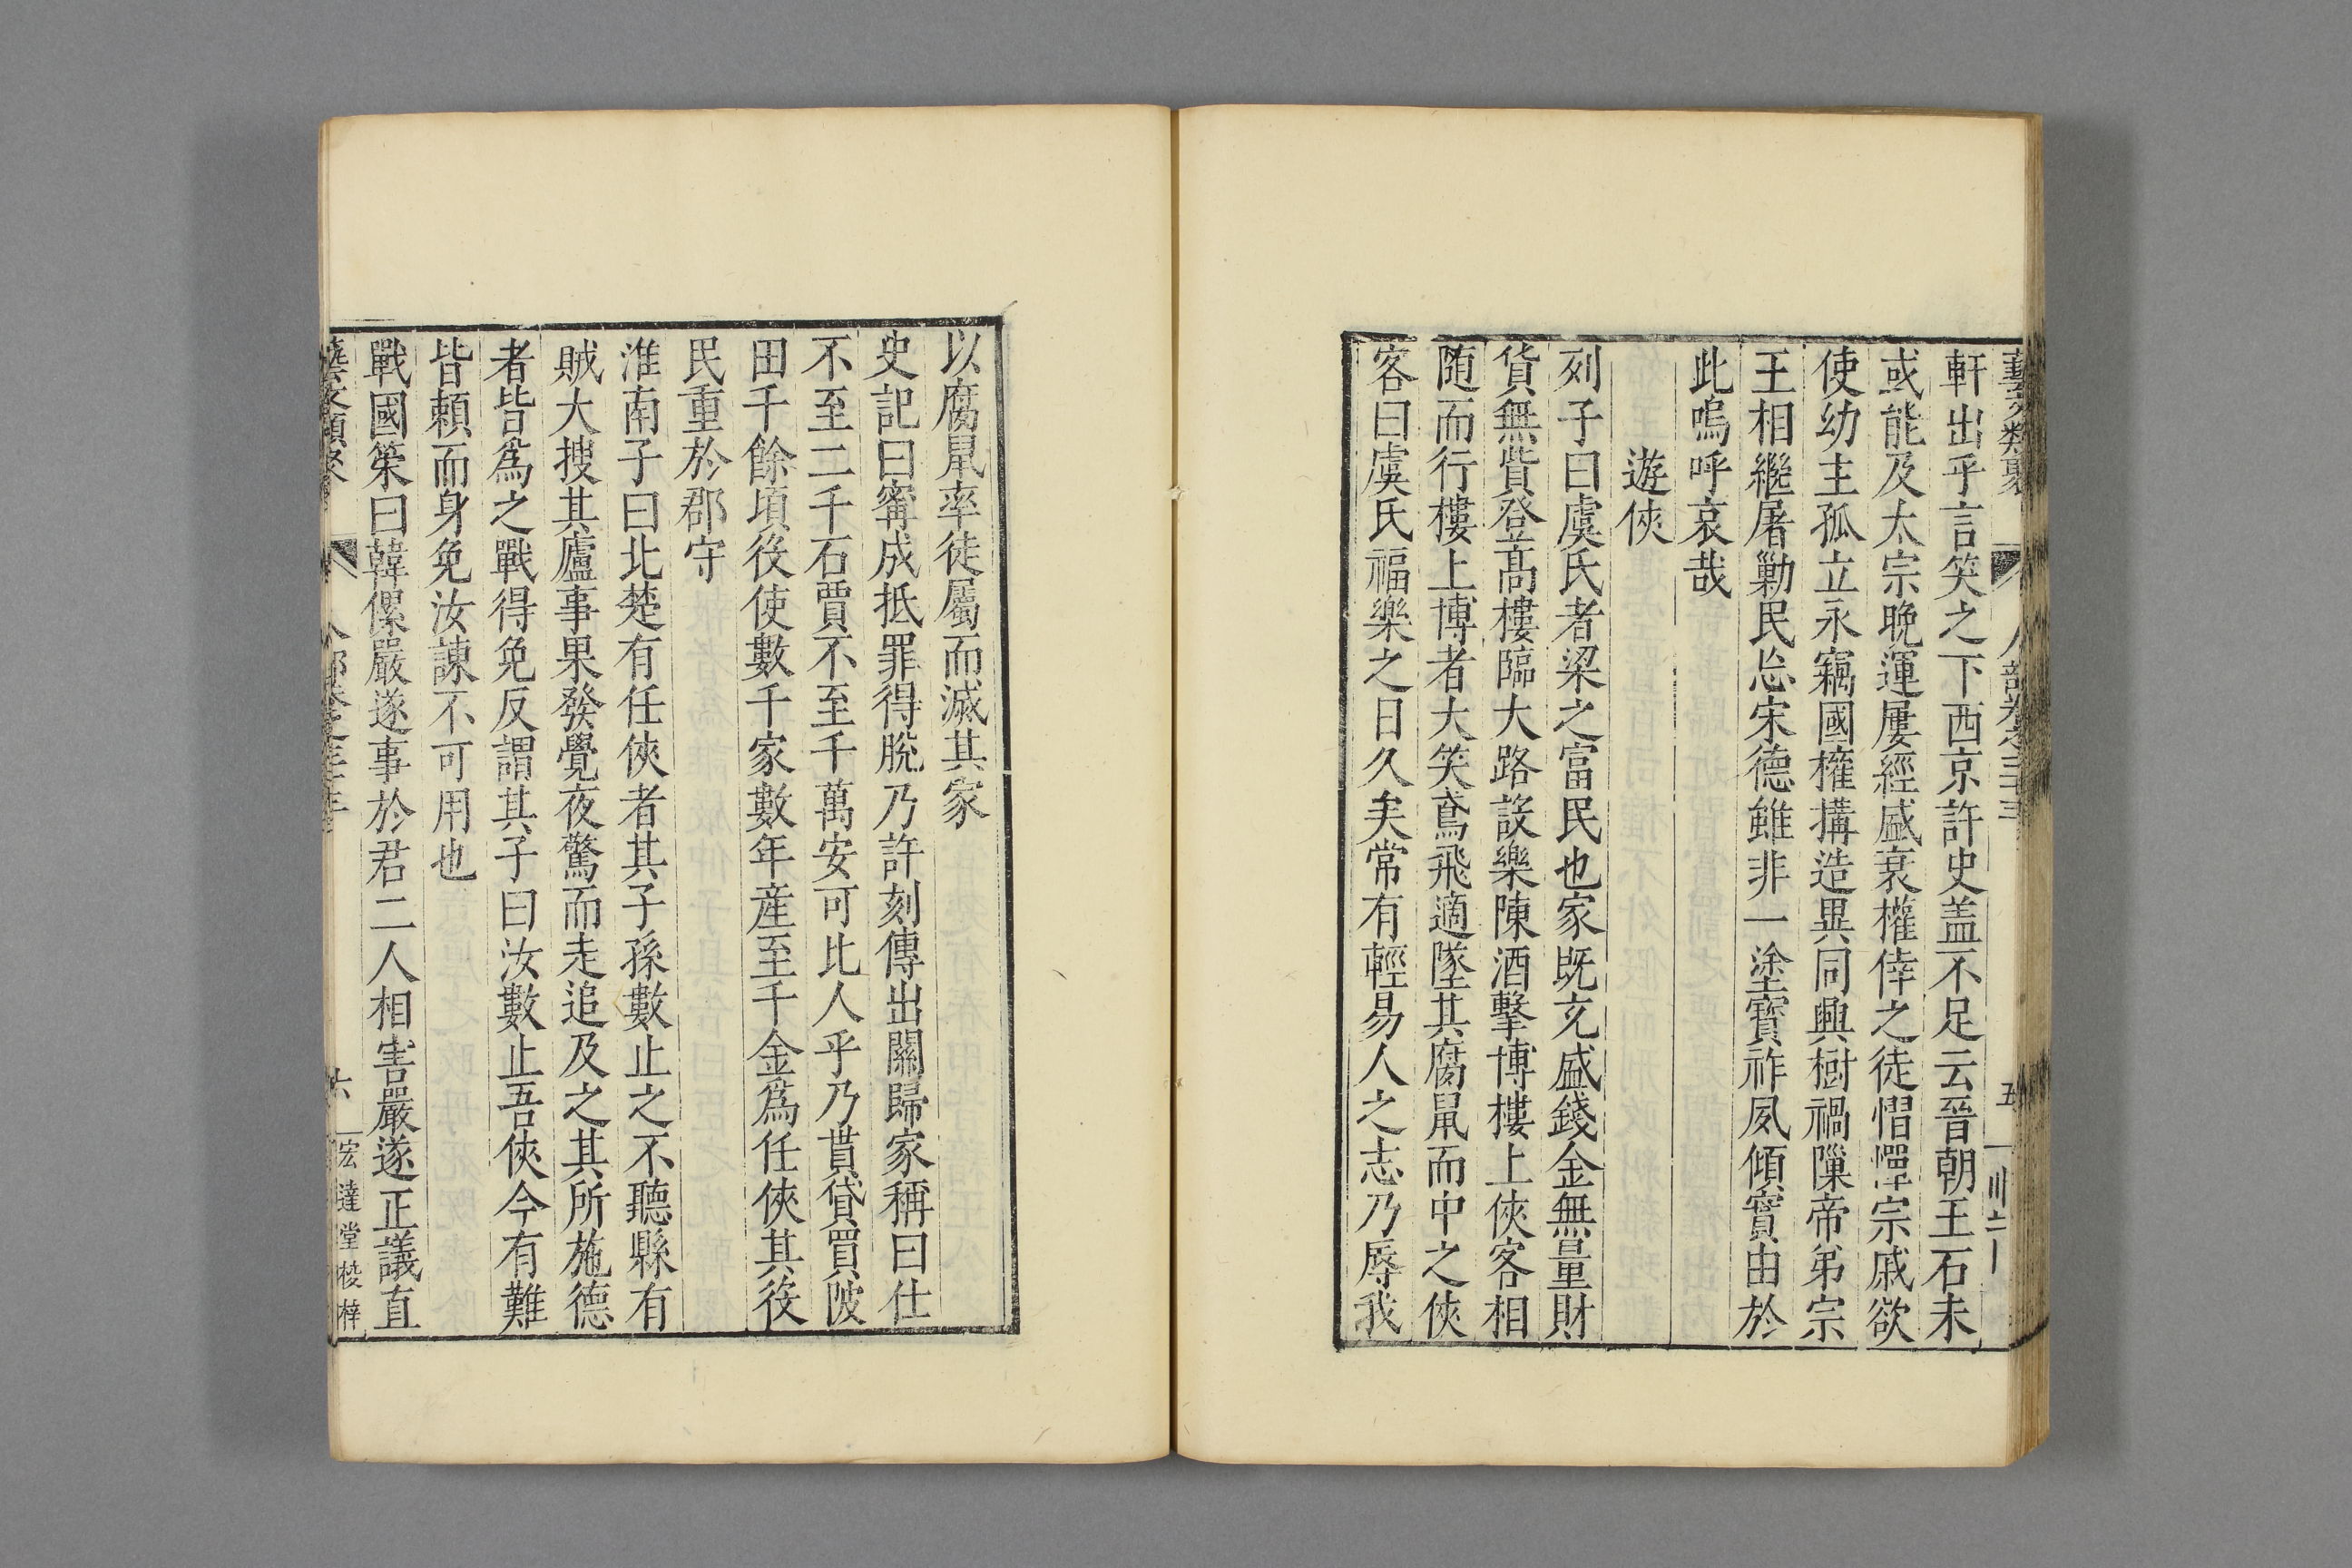 藝文類聚 人部卷之三十三 五
軒出乎言笑之下西京許史盖不足云晉朝王石未
或能及太宗晚運屢經盛衰權倖之徒慴憚宗戚欲
使幼主孤立永竊國權搆造異同興樹禍隟帝弟宗
王相繼屠勦民忘宋德雖非一塗寶祚夙傾實由於
此嗚呼哀哉
遊俠
列子曰虞氏者梁之富民也家既充盛錢金無量財
貨無貲登髙樓臨大路設樂陳酒擊博樓上俠客相
随而行樓上博者大笑鳶飛適墜其腐鼠而中之俠
客曰虞氏福樂之日久矣常有輕易人之志乃辱我
以腐鼠率徒屬而滅其家
史記曰甯成抵罪得脫乃許刻傳出關歸家稱曰仕
不至二千石賈不至千萬安可比人乎乃貰貸買陂
田千餘頃役使數千家數年産至千金爲任俠其役
民重於郡守
淮南子曰北楚有任俠者其子孫數止之不聽縣有
賊大搜其廬事果發覺夜驚而走追及之其所施德
者皆爲之戰得免反謂其子曰汝數止吾俠今有難
皆頼而身免汝諫不可用也
戰國策曰韓傫嚴遂事於君二人相害嚴遂正議直
藝文類聚 人部卷之三十三 六 宏達堂校梓